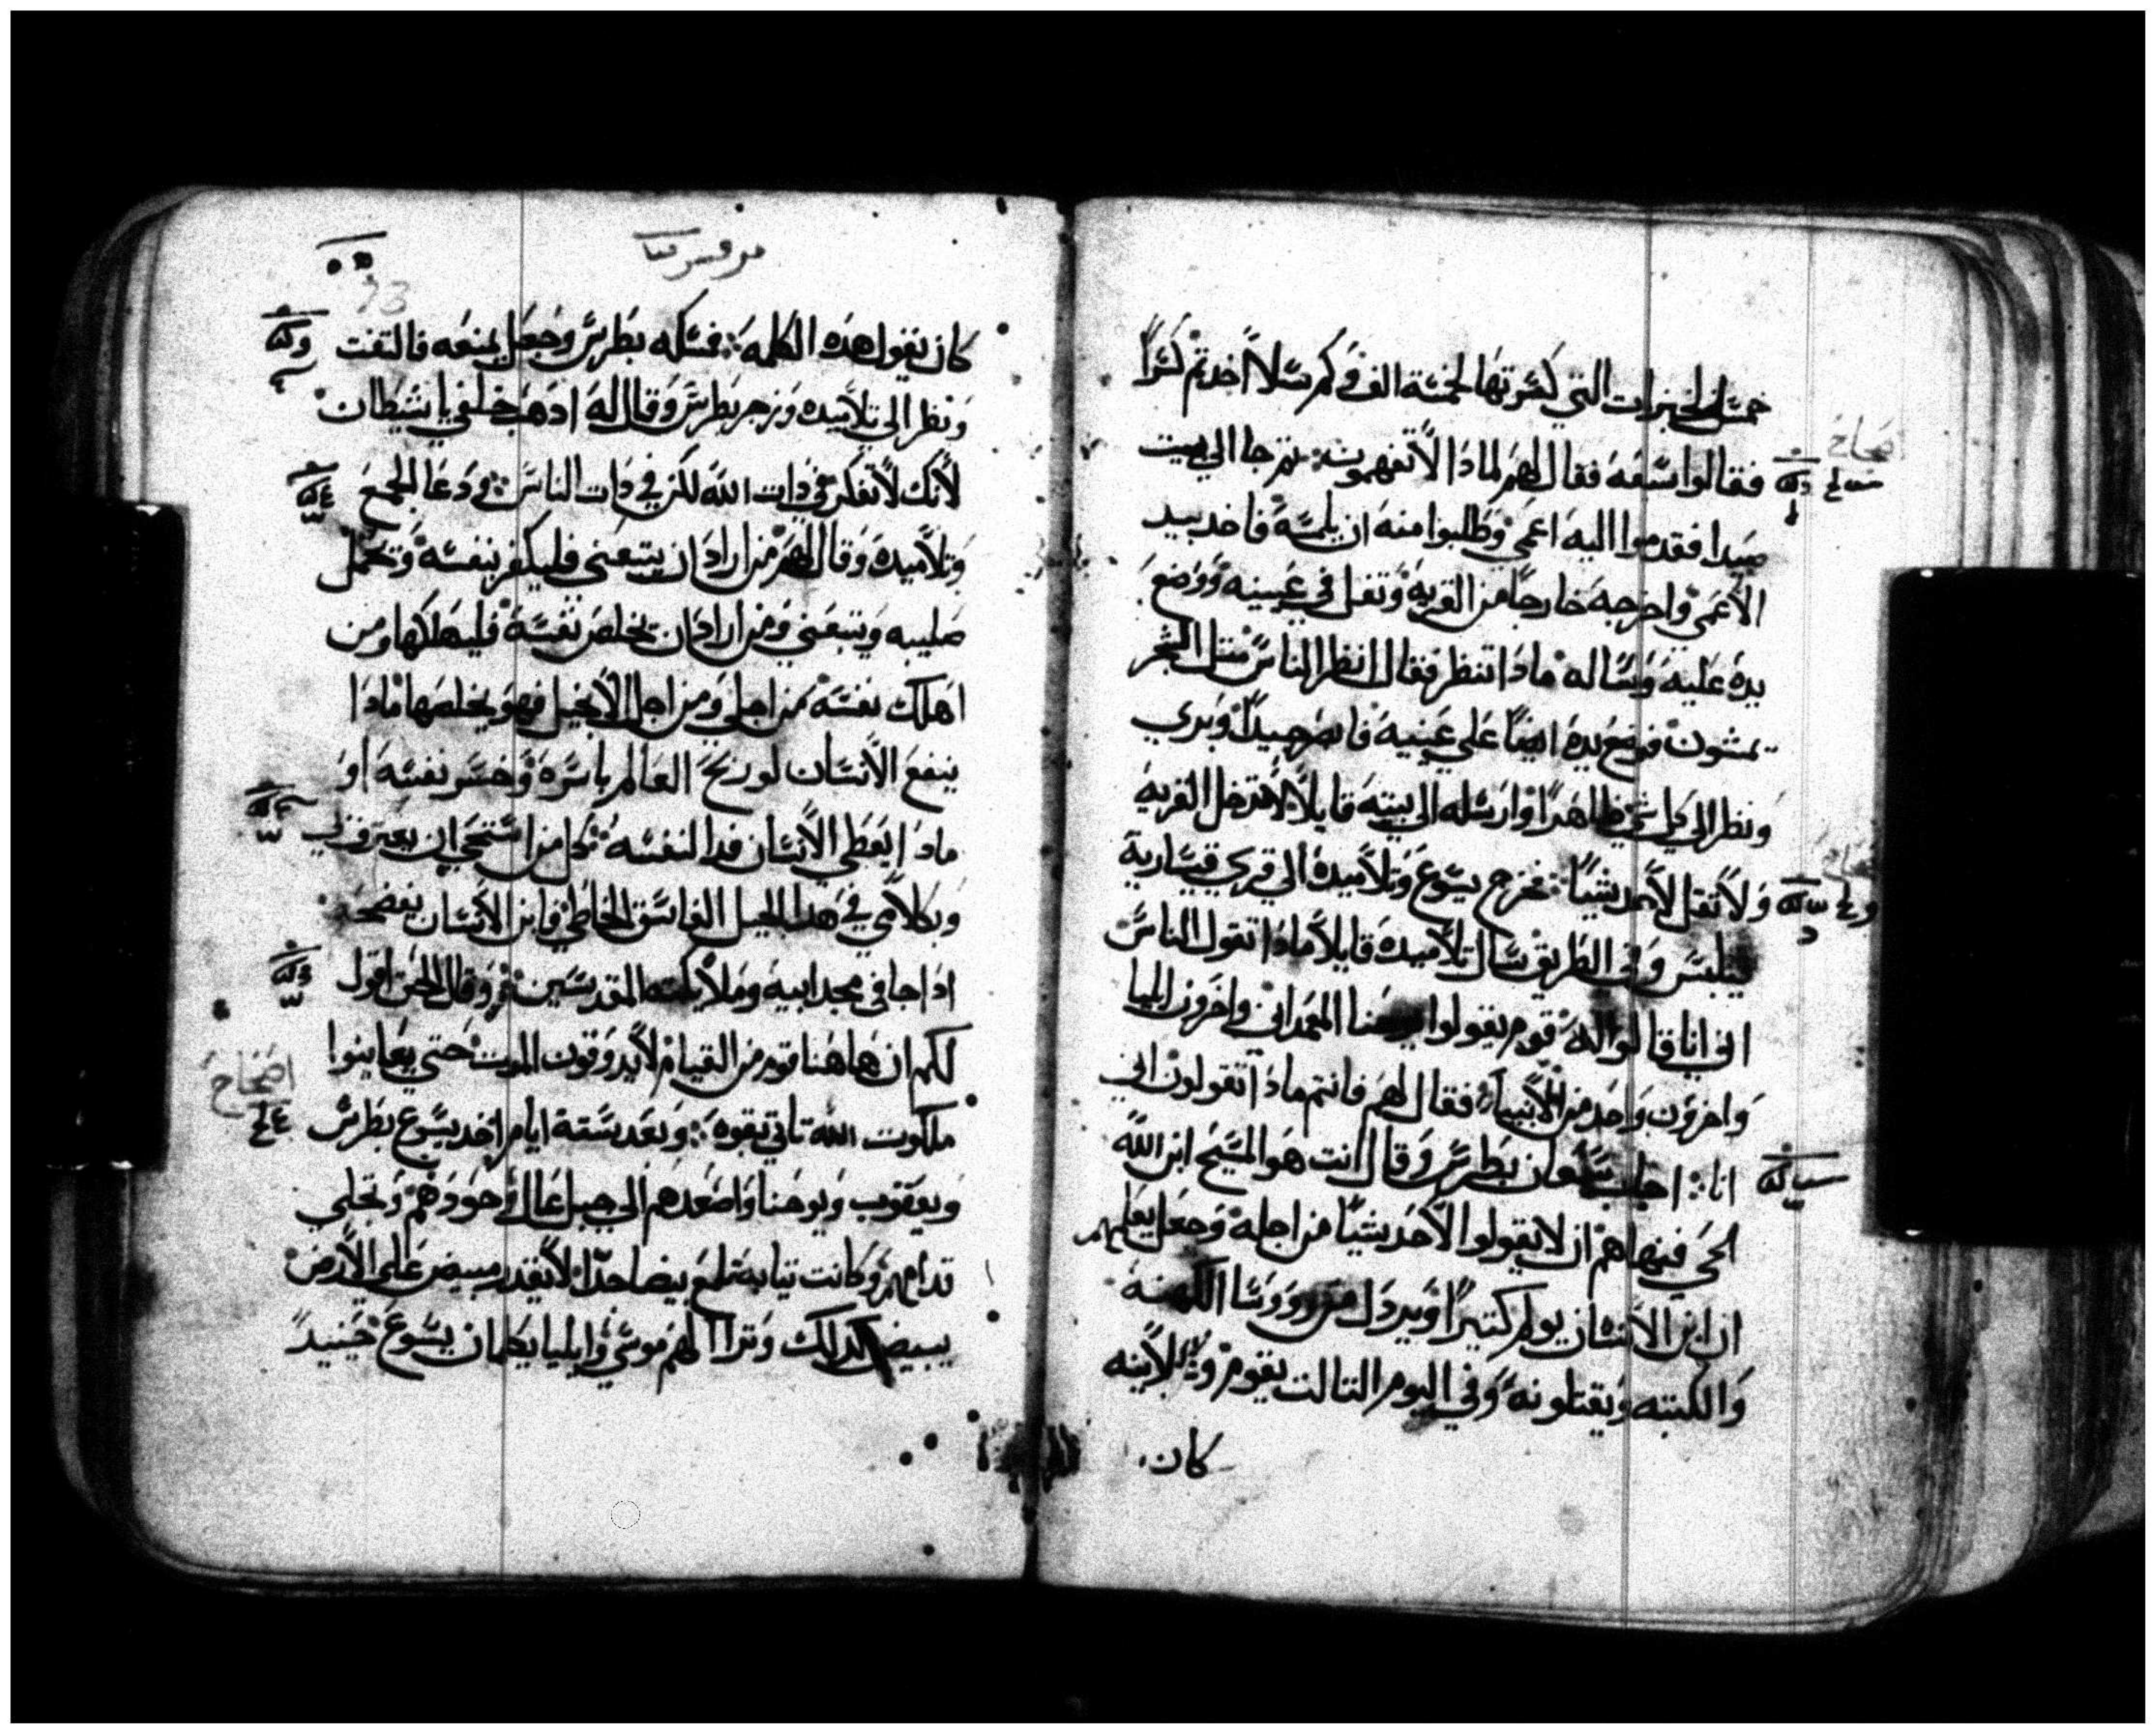 خمس الخبزات التي كسرتها لخمسة الف وكم سلا اخدتم كسرا
فقالوا سبعه فقال لهم لمادا لا تفهمون ثم جا الي بيت
صيدا فقدموا اليه اعمي وطلبوا منه ان يلمسه فاخد بيد
الاعمي واخرجه خارجا من القريه وتفل في عينيه ووضع
يده عليه وساله مادا تنظر فقال انظر الناس متل الشجر
يمشون فوضع يده ايضا علي عينيه فابصر جيدا وبري
ونظر الي كل شي ظاهرا وارسله الي بيته قايلا لا تدخل القريه
ولا تقل لاحد شيا فخرج يسوع وتلاميده الي قري قيسارية
فيلبس وفي الطريق سال تلاميده قايلا مادا تقول الناس
اني انا قالوا له قوم يقولوا يوحنا المعمداني واخرون ايليا
واخرون واحد من الانبيا فقال لهم فانتم مادا تقولون اني
انا اجاب سمعان بطرس وقال انت هو المسيح ابن الله
الحي فنهاهم ان لا يقولوا لاحد شيا من اجله وجعل يعلمهم
ان ابن الانسان يولم كتيرا ويردل من روسا الكهنه
والكتبه ويقتلونه وفي اليوم التالت يقوم وعلانيه
كان
مرقس
كان يقول هده الكلمه فمسكه بطرس وجعل يمنعه فالتفت
ونظر الي تلاميده وزجر بطرس وقال له ادهب خلفي يا شيطان
لانك لا تفكر في دات الله لكن في دات الناس ودعا الجمع
وتلاميده وقال لهم من اراد ان يتبعني فليكفر بنفسه وتحمل
صليبه ويتبعني ومن اراد ان يخلص نفسه فليهلكها ومن
اهلك نفسه من اجلي ومن اجل الانجيل فهو يخلصها مادا
ينفع الانسان لو ربح العالم باسره وخسر نفسه او
مادا يعطي الانسان فدا لنفسه كل من استحي ان يعترف بي
وبكلامي في هدا الجيل الفاسق الخاطي فابن الانسان يفضحه
ادا جا في مجد ابيه وملايكته المقدسين وقال الحق اقول
لكم ان هاهنا قوم من القيام لا يدوقون الموت حتي يعاينوا
ملكوت الله تاتي بقوه وبعد ستة ايام اخد يسوع بطرس
اصحاح
ويعقوب ويوحنا واصعدهم الي جبل عال وحودهم وتجلي
قدامهم وكانت تيابه تلمع بيضا جدا لا يقدر مبيض علي الارض
يبيض كدلك وترا لهم موسي وايليا يكلمان يسوع حينيد